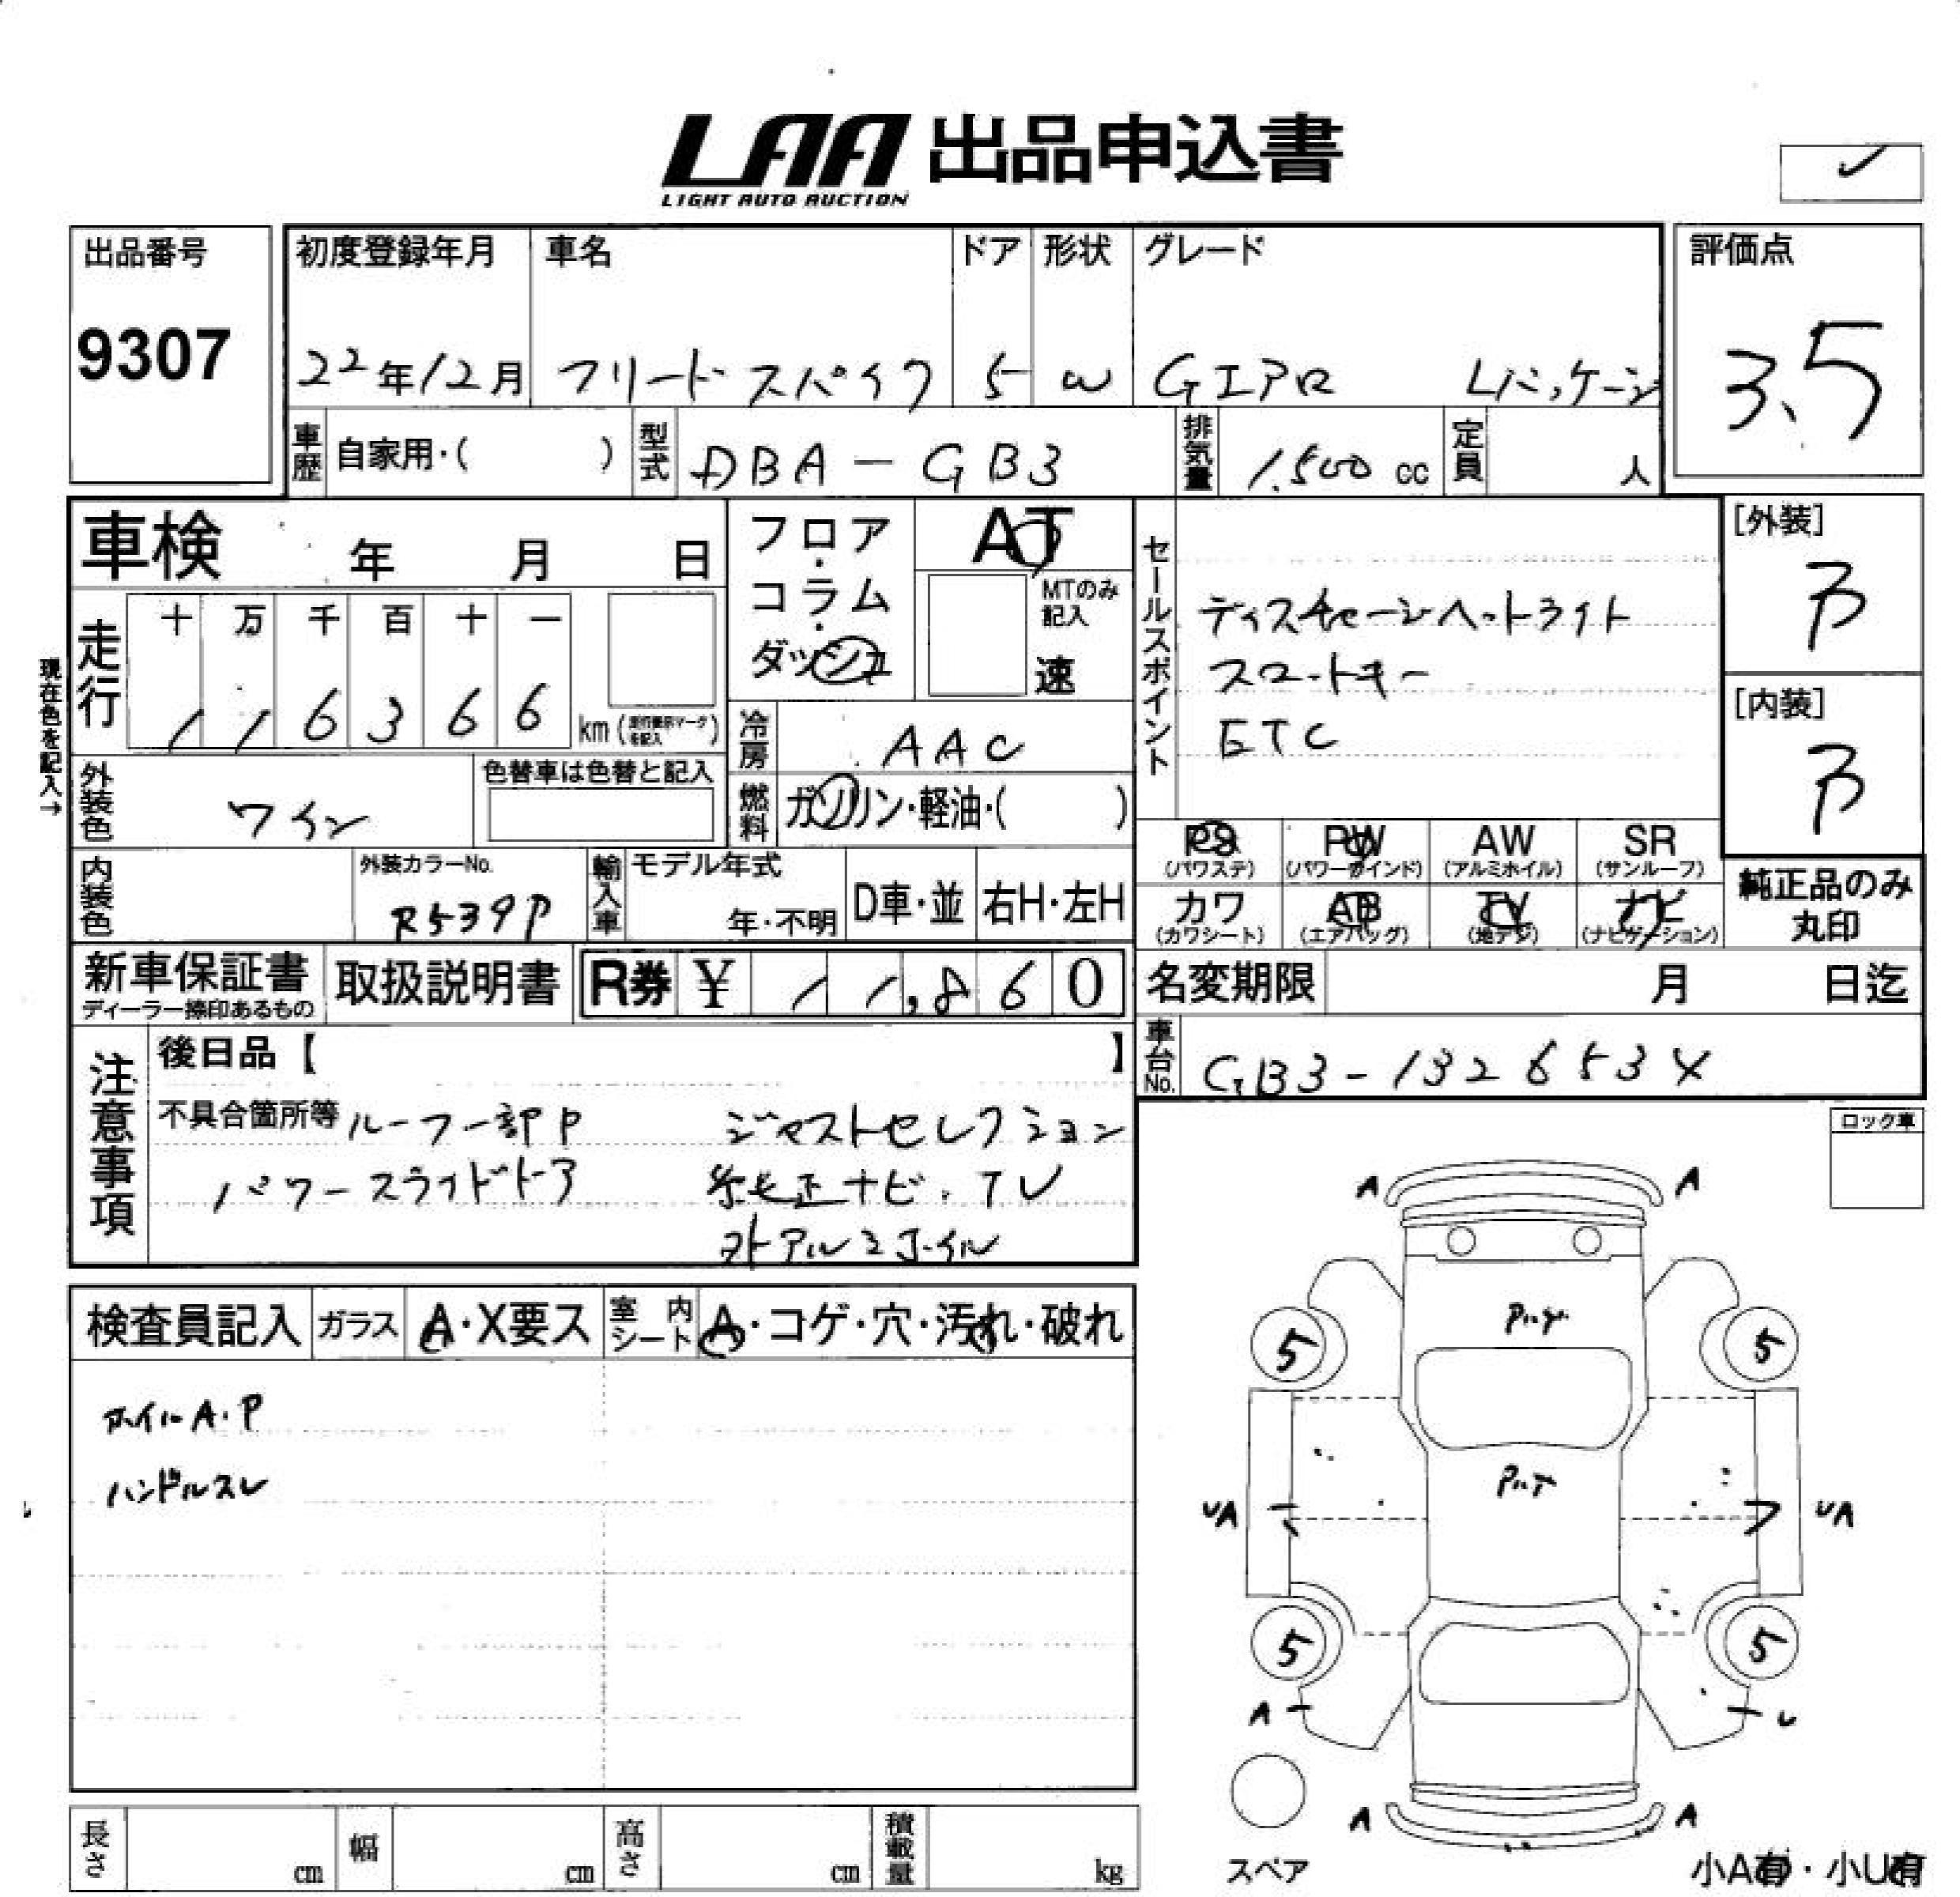 LAA 出品申込書
LIGHT AUTO AUCTION
出品番号
9307
初度登録年月
22年12月
車名
フリードスパイク
ドア
5
形状
W
グレード
Gエアロ Lパッケージ
評価点
3.5
車歴 自家用・( )
型式 DBA-GB3
排気量 1,500 cc
定員 人
車検 年 月 日
フロア・コラム・ダッシュ
AT
MTのみ記入
速
セールスポイント
ディスチャージヘッドライト
スマートキー
ETC
[外装]
B
[内装]
B
現在色を記入→
走行
十 万 千 百 十 一
1 1 6 3 6 6
km (走行表示マークを記入)
冷房 AAC
外装色 ワイン
色替車は色替と記入
燃料 ガソリン・軽油・( )
PS (パワステ)
PW (パワーウインド)
AW (アルミホイル)
SR (サンルーフ)
カワ (カワシート)
AB (エアバッグ)
TV (地デジ)
ナビ (ナビゲーション)
純正品のみ
丸印
内装色
外装カラーNo.
R539P
輸入車 モデル年式
年・不明
D車・並
右H・左H
新車保証書
ディーラー捺印あるもの
取扱説明書
R券 ¥ 11,860
名変期限 月 日迄
車台No. GB3-1326853X
注意事項
後日品【 】
不具合箇所等 ルーフ一部P ジャストセレクション
パワースライドドア 純正ナビ.TV
外アルミホイル
ロック車
検査員記入
ガラス A・X要ス
室内シート A・コゲ・穴・汚れ・破れ
ホイルA.P
ハンドルスレ
A A
5 5
UA UA
5 5
A U
A A
スペア
小A有・小U有
長さ cm
幅 cm
高さ cm
積載量 kg